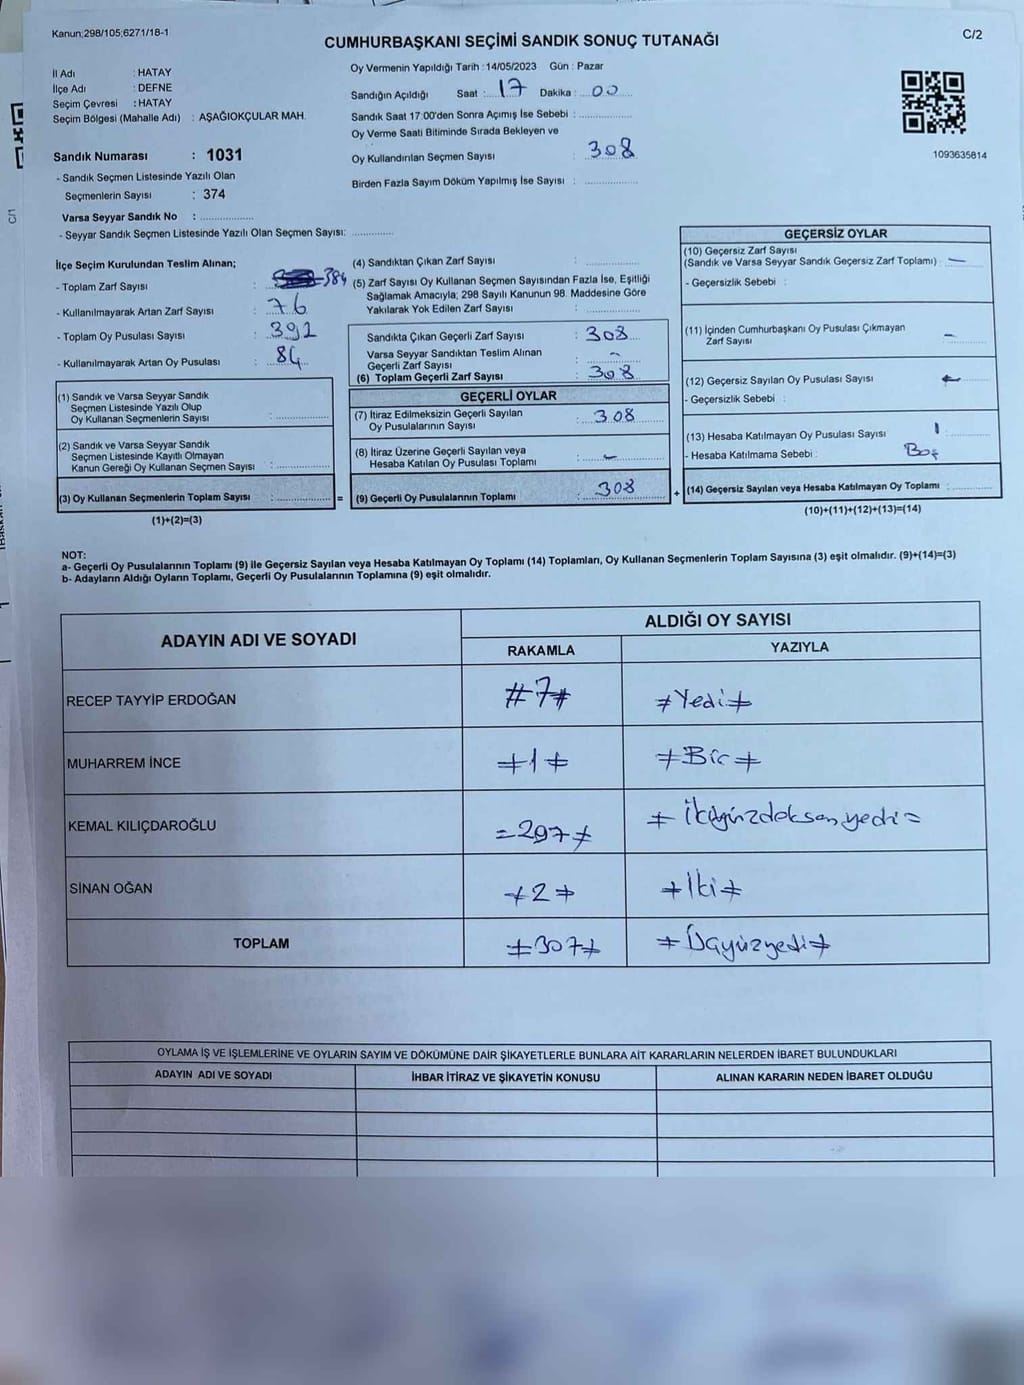 Kanun;298/105;6271/18-1
C/2
CUMHURBAŞKANI SEÇİMİ SANDIK SONUÇ TUTANAĞI
İl Adı : HATAY
İlçe Adı : DEFNE
Seçim Çevresi : HATAY
Seçim Bölgesi (Mahalle Adı) : AŞAĞIOKÇULAR MAH.
Oy Vermenin Yapıldığı Tarih :14/05/2023 Gün : Pazar
Sandığın Açıldığı Saat : 17 Dakika : 00
Sandık Saat 17:00'den Sonra Açımış İse Sebebi :
Oy Verme Saati Bitiminde Sırada Bekleyen ve
Oy Kullandırılan Seçmen Sayısı : 308
Birden Fazla Sayım Döküm Yapılmış İse Sayısı :
1093635814
Sandık Numarası : 1031
- Sandık Seçmen Listesinde Yazılı Olan
Seçmenlerin Sayısı : 374
Varsa Seyyar Sandık No :
- Seyyar Sandık Seçmen Listesinde Yazılı Olan Seçmen Sayısı:
İlçe Seçim Kurulundan Teslim Alınan;
- Toplam Zarf Sayısı : 384
- Kullanılmayarak Artan Zarf Sayısı : 76
- Toplam Oy Pusulası Sayısı : 392
- Kullanılmayarak Artan Oy Pusulası : 84
(1) Sandık ve Varsa Seyyar Sandık
Seçmen Listesinde Yazılı Olup
Oy Kullanan Seçmenlerin Sayısı :
(2) Sandık ve Varsa Seyyar Sandık
Seçmen Listesinde Kayıtlı Olmayan
Kanun Gereği Oy Kullanan Seçmen Sayısı :
(3) Oy Kullanan Seçmenlerin Toplam Sayısı :
=
(1)+(2)=(3)
(4) Sandıktan Çıkan Zarf Sayısı :
(5) Zarf Sayısı Oy Kullanan Seçmen Sayısından Fazla İse, Eşitliği
Sağlamak Amacıyla; 298 Sayılı Kanunun 98. Maddesine Göre
Yakılarak Yok Edilen Zarf Sayısı :
Sandıkta Çıkan Geçerli Zarf Sayısı : 308
Varsa Seyyar Sandıktan Teslim Alınan
Geçerli Zarf Sayısı : -
(6) Toplam Geçerli Zarf Sayısı : 308
GEÇERLİ OYLAR
(7) İtiraz Edilmeksizin Geçerli Sayılan
Oy Pusulalarının Sayısı : 308
(8) İtiraz Üzerine Geçerli Sayılan veya
Hesaba Katılan Oy Pusulası Toplamı : -
(9) Geçerli Oy Pusulalarının Toplamı : 308
+
GEÇERSİZ OYLAR
(10) Geçersiz Zarf Sayısı
(Sandık ve Varsa Seyyar Sandık Geçersiz Zarf Toplamı) : -
- Geçersizlik Sebebi :
(11) İçinden Cumhurbaşkanı Oy Pusulası Çıkmayan
Zarf Sayısı : -
(12) Geçersiz Sayılan Oy Pusulası Sayısı : -
- Geçersizlik Sebebi :
(13) Hesaba Katılmayan Oy Pusulası Sayısı : 1
- Hesaba Katılmama Sebebi : Boş
(14) Geçersiz Sayılan veya Hesaba Katılmayan Oy Toplamı :
(10)+(11)+(12)+(13)=(14)
NOT:
a- Geçerli Oy Pusulalarının Toplamı (9) ile Geçersiz Sayılan veya Hesaba Katılmayan Oy Toplamı (14) Toplamları, Oy Kullanan Seçmenlerin Toplam Sayısına (3) eşit olmalıdır. (9)+(14)=(3)
b- Adayların Aldığı Oyların Toplamı, Geçerli Oy Pusulalarının Toplamına (9) eşit olmalıdır.
ADAYIN ADI VE SOYADI
ALDIĞI OY SAYISI
RAKAMLA YAZIYLA
RECEP TAYYİP ERDOĞAN #7# ≠Yedi≠
MUHARREM İNCE ≠1≠ ≠Bir≠
KEMAL KILIÇDAROĞLU =297≠ ≠ ikiyüzdoksanyedi =
SİNAN OĞAN ≠2≠ ≠İki≠
TOPLAM ≠307≠ ≠Üçyüzyedi≠
OYLAMA İŞ VE İŞLEMLERİNE VE OYLARIN SAYIM VE DÖKÜMÜNE DAİR ŞİKAYETLERLE BUNLARA AİT KARARLARIN NELERDEN İBARET BULUNDUKLARI
ADAYIN ADI VE SOYADI İHBAR İTİRAZ VE ŞİKAYETİN KONUSU ALINAN KARARIN NEDEN İBARET OLDUĞU